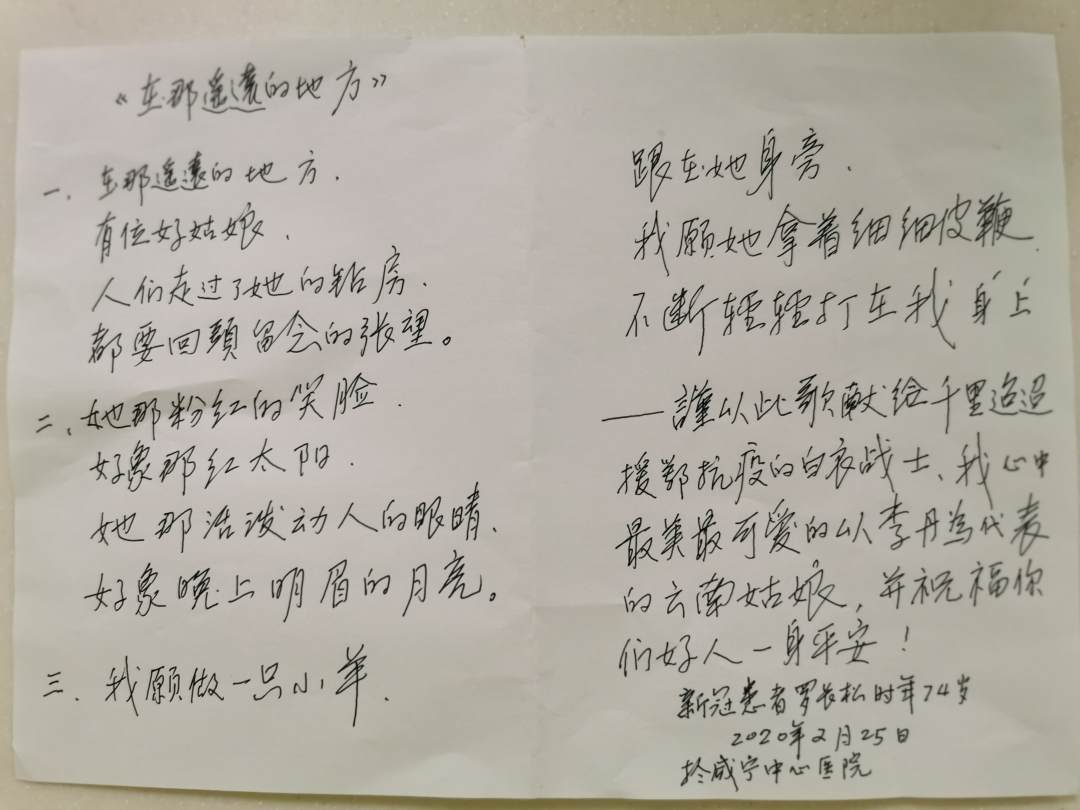 《在那遥遠的地方》
一、在那遥遠的地方.
有位好姑娘、
人们走过了她的毡房、
都要回頭留念的張望。
二、她那粉红的笑脸.
好象那红太阳.
她那活泼动人的眼睛、
好象晚上明眉的月亮。
三、我願做一只小羊、
跟在她身旁、
我願她拿着细细皮鞭
不断轻轻打在我身上
——謹以此歌献给千里迢迢
援鄂抗疫的白衣战士、我心中
最美最可爱的以李丹為代表
的云南姑娘，并祝福你
们好人一身平安！
新冠患者罗长松时年74岁
2020年2月25日
於咸宁中心医院